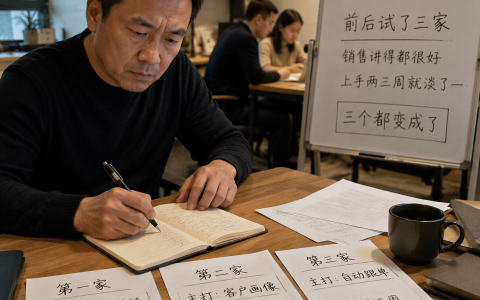 前后试了三家
销售讲得都很好
上手两三周就淡了一
三个都变成了
第一家
第二家
主打：客户画像
第三家
主打：自动跟单